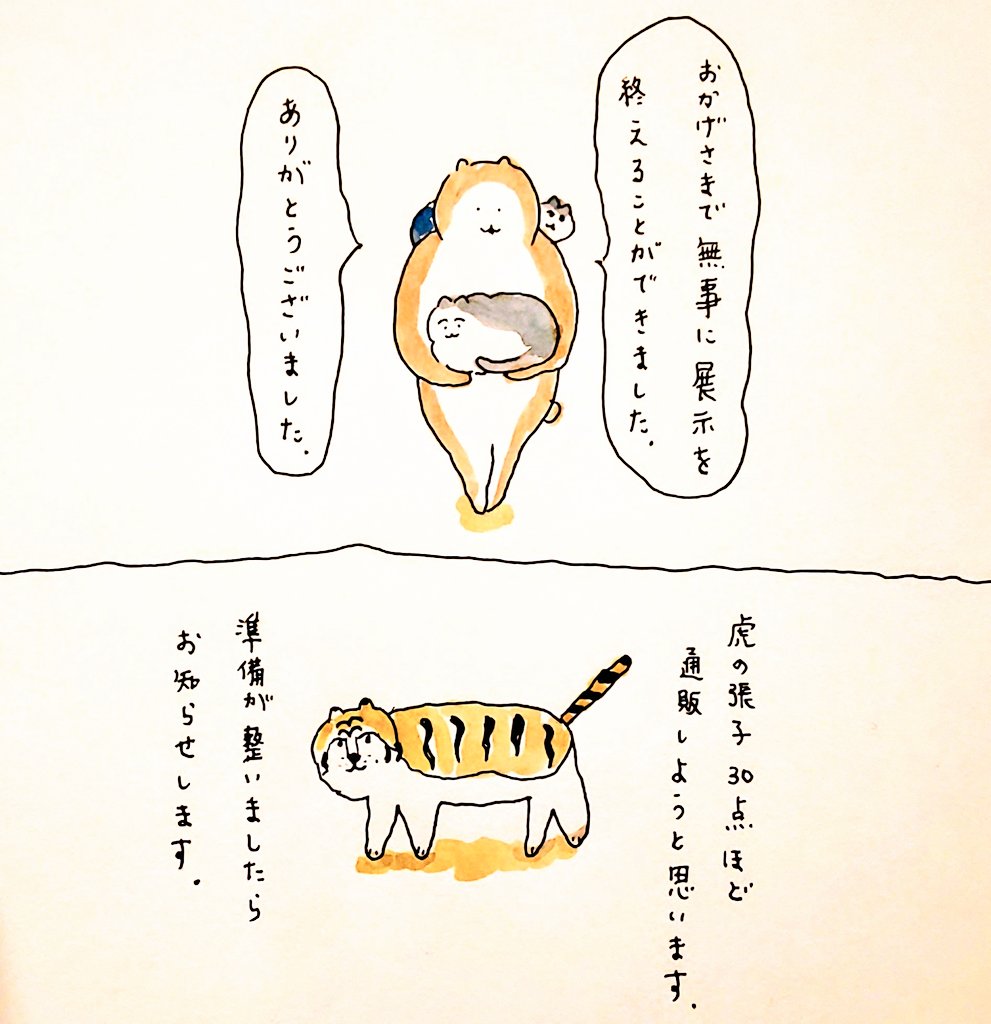 おかげさまで無事に展示を
終えることができました.
ありがとうございました.
虎の張子30点ほど
通販しようと思います.
準備が整いましたら
お知らせします.